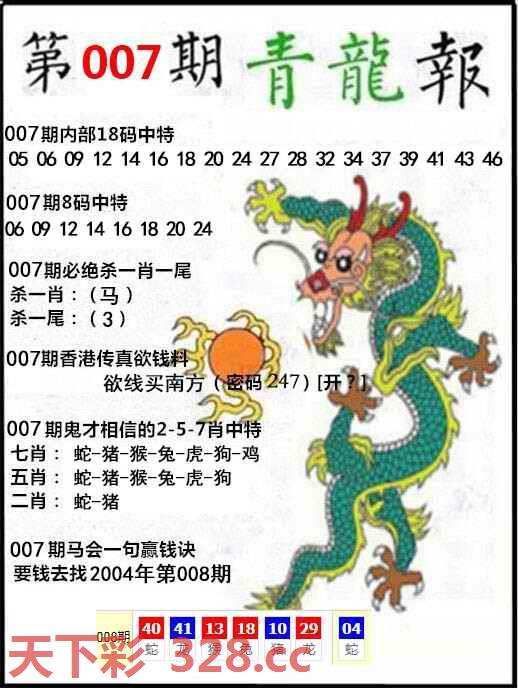 第007期青龍報
007期内部18码中特
05 06 09 12 14 16 18 20 24 27 28 32 34 37 39 41 43 46
007期8码中特
06 09 12 14 16 18 20 24
007期必绝杀一肖一尾
杀一肖：（马）
杀一尾：（3）
007期香港传真欲钱料
欲线买南方（密码247）[开？]
007期鬼才相信的2-5-7肖中特
七肖： 蛇-猪-猴-兔-虎-狗-鸡
五肖： 蛇-猪-猴-兔-虎-狗
二肖： 蛇-猪
007期马会一句赢钱诀
要钱去找2004年第008期
008期 40 41 13 18 10 29 04
蛇 龙 猴 兔 猪 龙 蛇
天下彩 328.cc